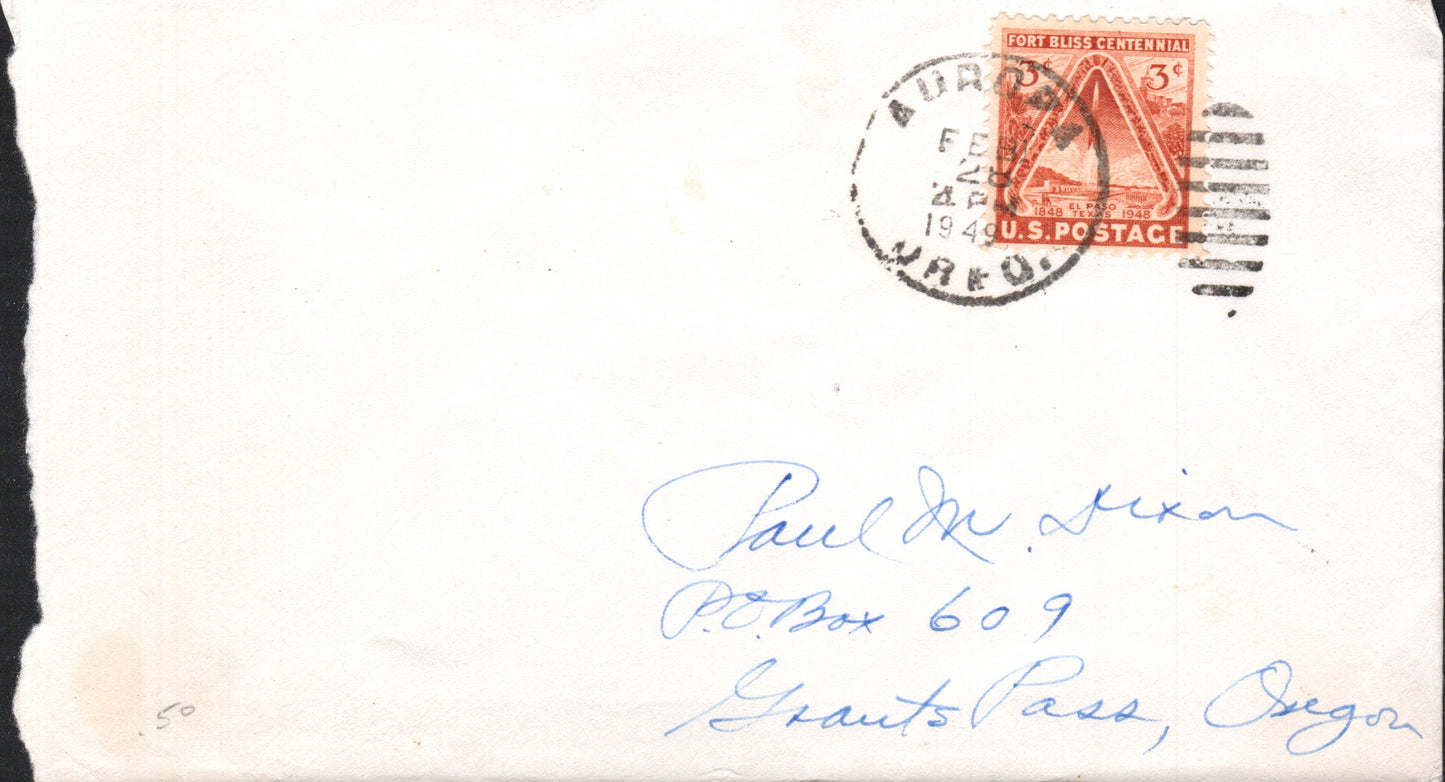 FORT BLISS CENTENNIAL
3¢ 3¢
EL PASO
1848 TEXAS 1948
U.S. POSTAGE
AURORA
FEB
28
4 PM
1949
OREG.
Paul M. Dixon
P.O. Box 609
Grants Pass, Oregon
50